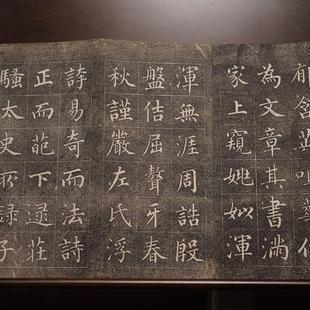 郁含英咀華作
為文章其書滿
家上窺姚姒渾
渾無涯周誥殷
盤佶屈聱牙春
秋謹嚴左氏浮
誇易奇而法詩
正而葩下逮莊
騷太史所録子